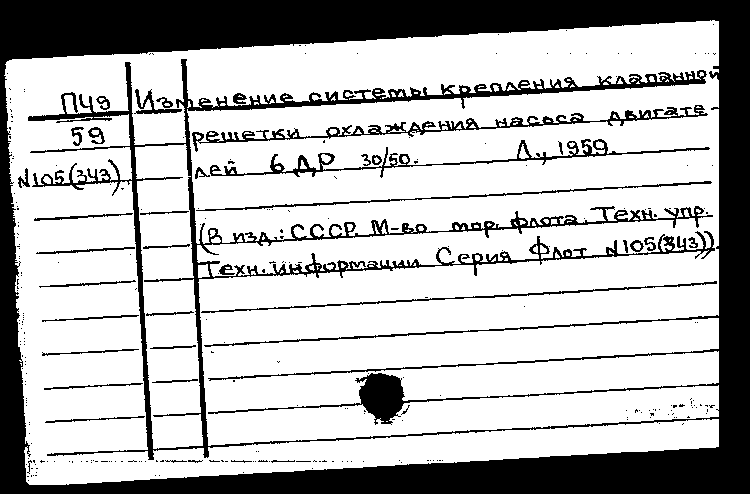 П49 Изменение системы крепления клапанной
59 решетки охлаждения насоса двигате-
N105(343) лей 6 ДР 30/50. Л., 1959.
(В изд.: СССР. М-во мор. флота. Техн. упр.
Техн. информации Серия Флот N105(343)).